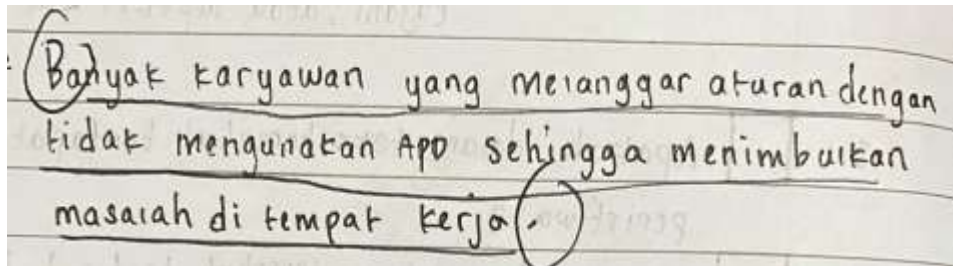 Banyak karyawan yang melanggar aturan dengan
tidak mengunakan APD sehingga menimbulkan
masalah di tempat kerja.